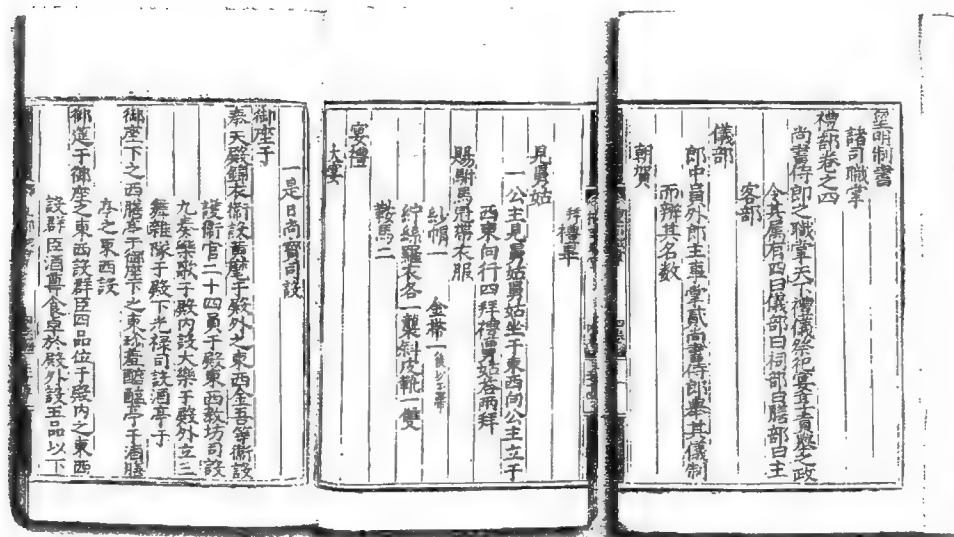 皇明制書
諸司職掌
禮部卷之四
尚書侍郎之職掌天下禮儀祭祀宴享貢舉之政
令其屬有四曰儀部曰祠部曰膳部曰主
客部
儀部
郎中員外郎主事掌貳尚書侍郎舉其儀制
而辨其名數
朝賀
拜禮畢
見舅姑
一公主見舅姑舅姑坐于東西向公主立于
西東向行四拜禮舅姑荅兩拜
賜駙馬冠帶衣服
紗帽一 金帶一
紵絲羅衣各一襲斜皮靴一雙
鞍馬二
宴禮
大宴
一是日尚寶司設
御座于
奉天殿錦衣衛設黃麾于殿外之東西金吾等衛設
護衛官二十四員于殿東西教坊司設
九奏樂歌于殿內設大樂于殿外立三
舞雜隊于殿下光祿司設酒亭于
御座下之西膳亭于御座下之東珍羞醯醢亭于酒膳
亭之東西設
御筵于御座之東西設群臣四品位于殿內之東西
設群臣酒尊食卓於殿外設五品以下